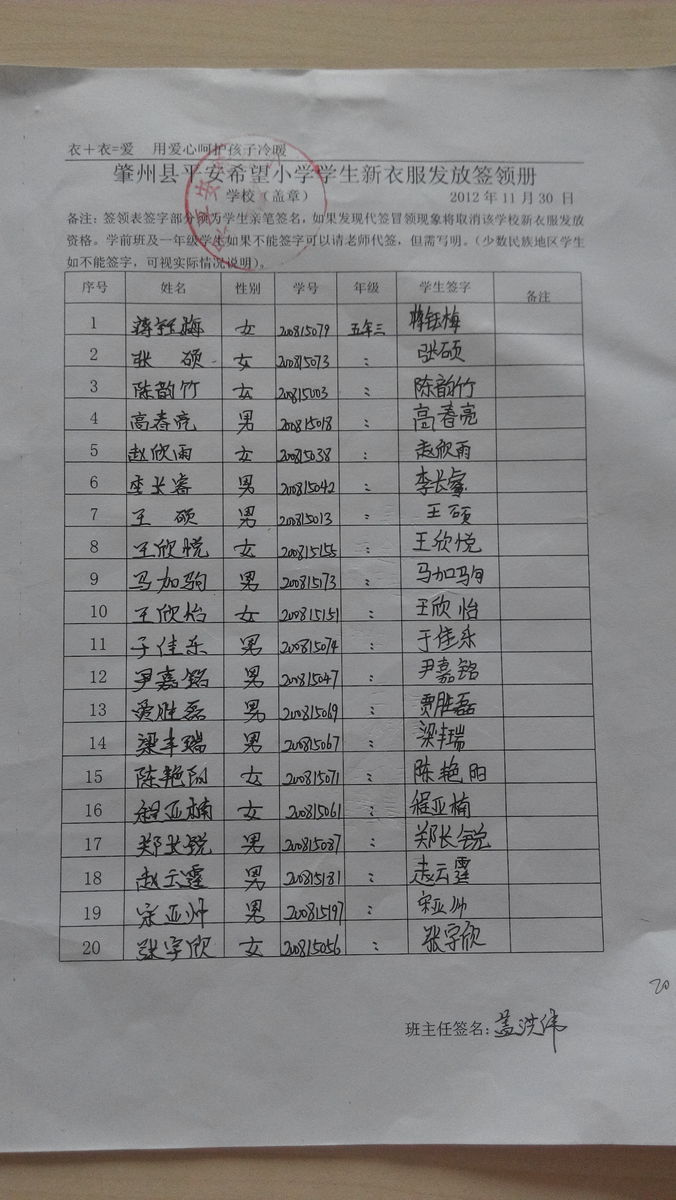 衣＋衣=爱 用爱心呵护孩子冷暖
肇州县平安希望小学学生新衣服发放签领册
学校（盖章） 2012 年 11 月 30 日
备注：签领表签字部分须为学生亲笔签名，如果发现代签冒领现象将取消该学校新衣服发放
资格。学前班及一年级学生如果不能签字可以请老师代签，但需写明。（少数民族地区学生
如不能签字，可视实际情况说明）。
序号 姓名 性别 学号 年级 学生签字 备注
1 蒋钰梅 女 200815079 五年三 蒋钰梅
2 张硕 女 200815073 : 张硕
3 陈韵竹 女 200815003 : 陈韵竹
4 高春亮 男 200815018 : 高春亮
5 赵欣雨 女 200815038 : 赵欣雨
6 李长睿 男 200815042 : 李长睿
7 王硕 男 200815013 : 王硕
8 王欣悦 女 200815155 : 王欣悦
9 马加驹 男 200815173 : 马加驹
10 王欣怡 女 200815151 : 王欣怡
11 于佳乐 男 200815074 : 于佳乐
12 尹嘉铭 男 200815047 : 尹嘉铭
13 贾胜磊 男 200815069 : 贾胜磊
14 梁丰瑞 男 200815067 : 梁丰瑞
15 陈艳阳 女 200815071 : 陈艳阳
16 程亚楠 女 200815061 : 程亚楠
17 郑长锐 男 200815087 : 郑长锐
18 赵云霆 男 200815181 : 赵云霆
19 宋亚帅 男 200815197 : 宋亚帅
20 张宇欣 女 200815056 : 张宇欣
20
班主任签名：盖洪伟